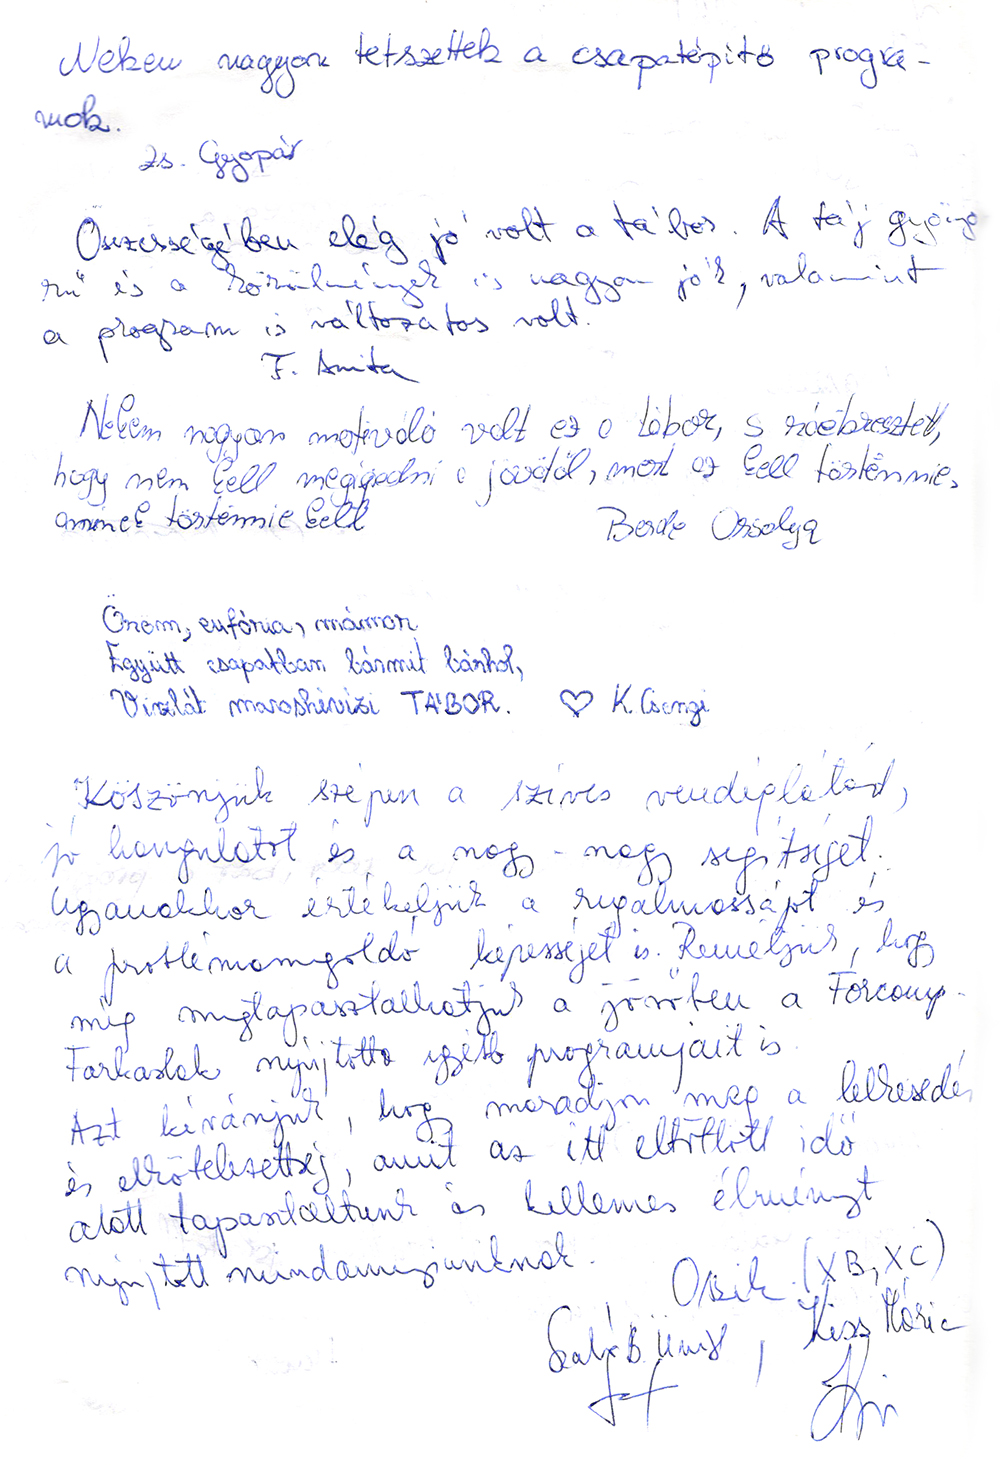 Nekem nagyon tetszettek a csapatépitő progra-
mok.
Zs. Gyopár
Összességében elég jó volt a tábor. A táj gyöngyö
rű és a körülmények is nagyon jók, valamint
a program is változatos volt.
F. Anita
Nekem nagyon motiváló volt ez a tábor, s ráébresztett,
hogy nem kell megijedni a jövőtől, mert az kell történnie,
aminek történnie kell
Berde Orsolya
Öröm, eufória, mámor
Együtt csapatban bármit bárhol,
Viszlát maroshévizi TÁBOR. ♡ K. Csengi
Köszönjük szépen a szíves vendéglátást,
jó hangulatot és a nagy-nagy segítséget.
Ugyanakkor értékeljük a rugalmasságot és
a problémamegoldó képességet is. Reméljük, hogy
még megtapasztalhatjuk a jövőben a Forcamp-
Farkaslak nyújtotta egyéb programjait is.
Azt kívánjuk, hogy maradjon meg a lelkesedés
és elkötelezettség, amit az itt eltöltött idő
alatt tapasztaltunk és kellemes élményt
nyújtott mindannyiunknak.
Oszik. (XB, XC)
Szabó B. , Kiss Mária